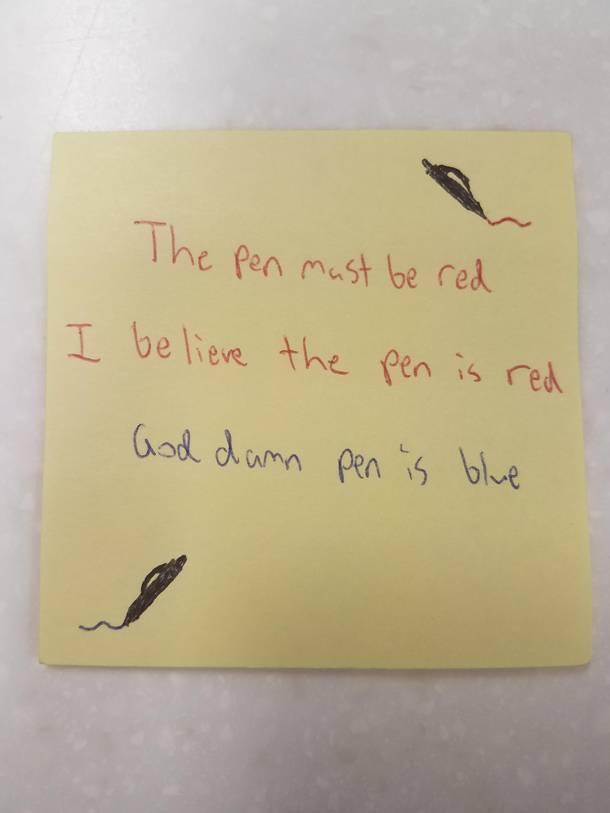 The pen must be red
I believe the pen is red
God damn pen is blue